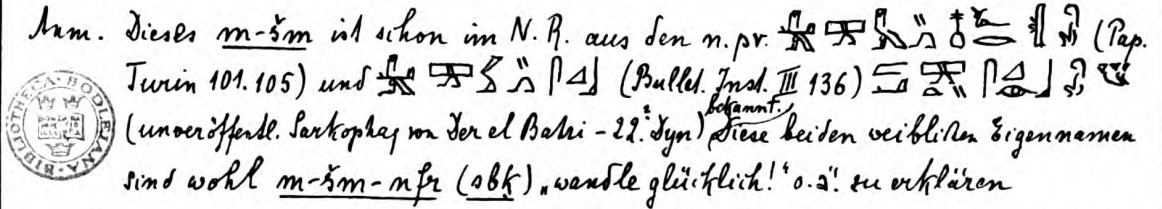 Anm. Dieses m-šm ist schon im N. R. aus den n. pr. (Pap.
Turin 101. 105) und (Bullet. Inst. III 136)
(unveröffentl. Sarkophag von Der el Bahri - 22. Dyn) bekannt. Diese beiden weiblichen Eigennamen
sind wohl m-šm-nfr (sbḳ) „wandle glücklich!“ o. ä. zu erklären
BIBLIOTHECA BODLEIANA